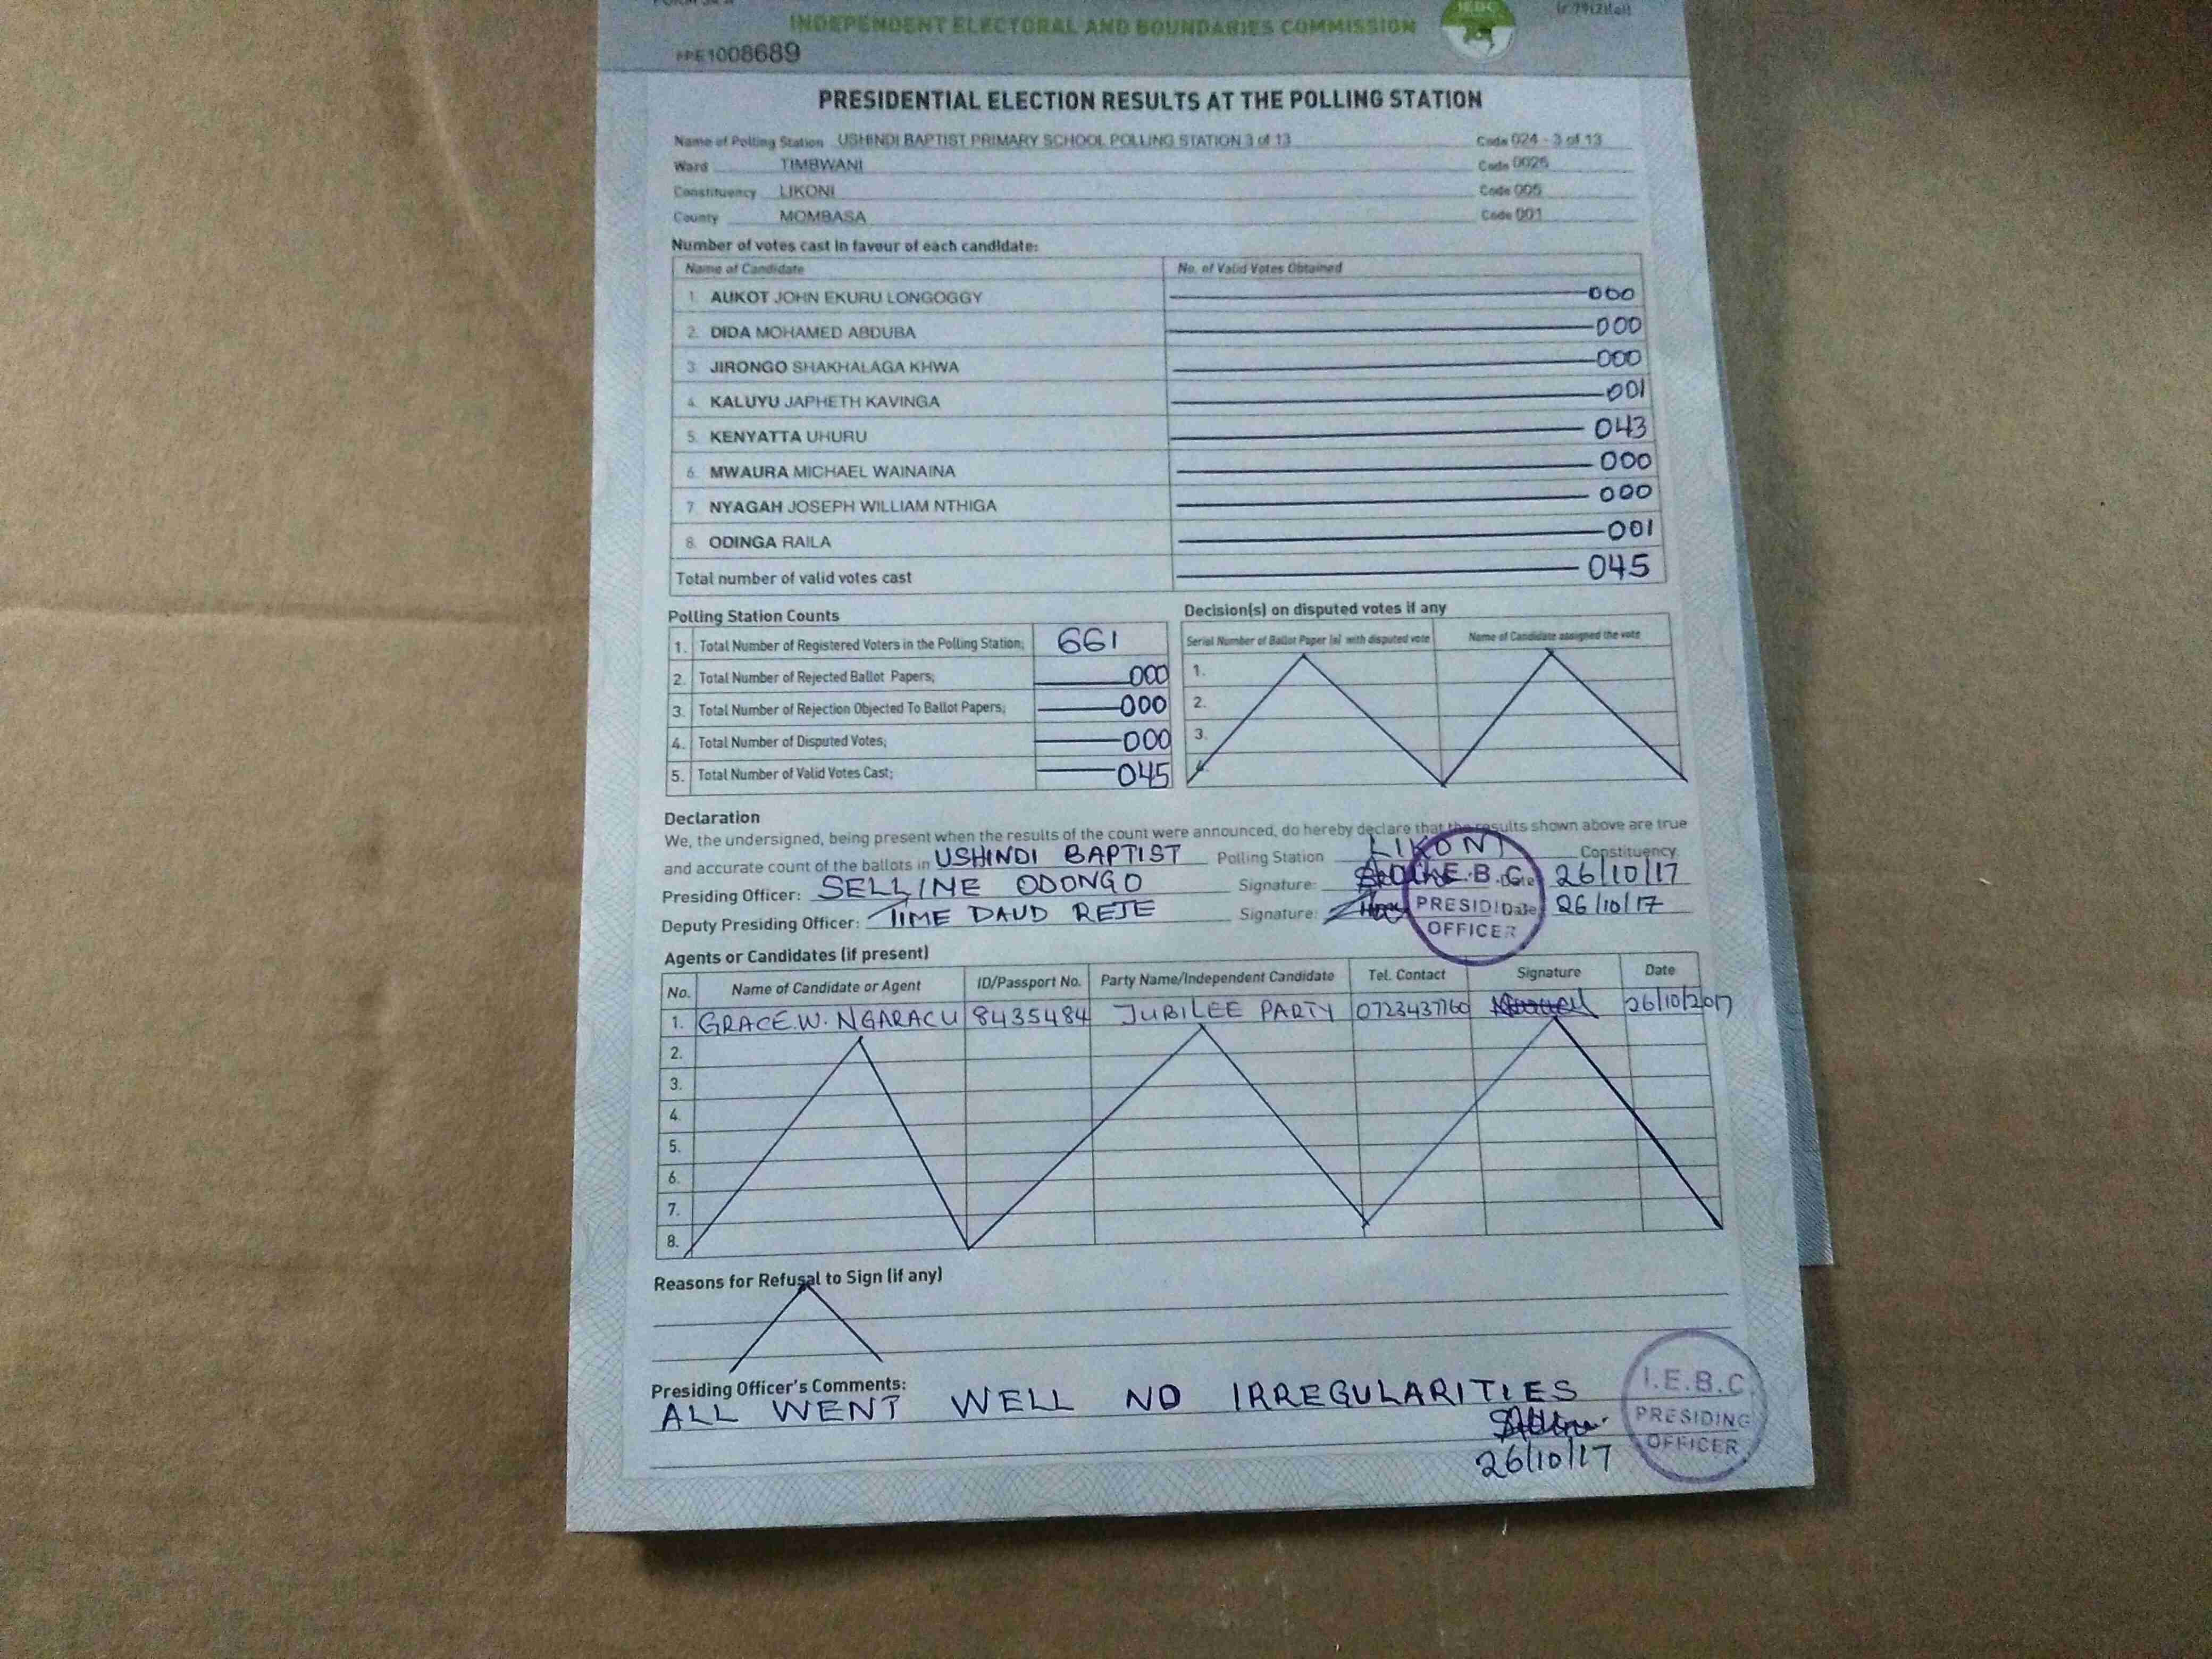 INDEPENDENT ELECTORAL AND BOUNDARIES COMMISSION
IEBC
1008689
PRESIDENTIAL ELECTION RESULTS AT THE POLLING STATION
Name of Polling Station USHINDI BAPTIST PRIMARY SCHOOL POLLING STATION 3 of 13 Code 024 - 3 of 13
Ward TIMBWANI Code 0025
Constituency LIKONI Code 005
County MOMBASA Code 001
Number of votes cast in favour of each candidate:
Name of Candidate No. of Valid Votes Obtained
1. AUKOT JOHN EKURU LONGOGGY 000
2. DIDA MOHAMED ABDUBA 000
3. JIRONGO SHAKHALAGA KHWA 000
4. KALUYU JAPHETH KAVINGA 001
5. KENYATTA UHURU 043
6. MWAURA MICHAEL WAINAINA 000
7. NYAGAH JOSEPH WILLIAM NTHIGA 000
8. ODINGA RAILA 001
Total number of valid votes cast 045
Polling Station Counts
1. Total Number of Registered Voters in the Polling Station; 661
2. Total Number of Rejected Ballot Papers; 000
3. Total Number of Rejection Objected To Ballot Papers; 000
4. Total Number of Disputed Votes; 000
5. Total Number of Valid Votes Cast; 045
Decision(s) on disputed votes if any
Serial Number of Ballot Paper (s) with disputed vote Name of Candidate assigned the vote
1.
2.
3.
4.
Declaration
We, the undersigned, being present when the results of the count were announced, do hereby declare that the results shown above are true
and accurate count of the ballots in USHINDI BAPTIST Polling Station LIKONI Constituency.
Presiding Officer: SELLINE ODONGO Signature: Date 26/10/17
Deputy Presiding Officer: TIME DAUD REJE Signature: Date 26/10/17
I.E.B.C.
PRESIDING
OFFICER
Agents or Candidates (if present)
No. Name of Candidate or Agent ID/Passport No. Party Name/Independent Candidate Tel. Contact Signature Date
1. GRACE.W. NGARACU 8435484 JUBILEE PARTY 0723437760 26/10/2017
2.
3.
4.
5.
6.
7.
8.
Reasons for Refusal to Sign (if any)
Presiding Officer's Comments:
ALL WENT WELL NO IRREGULARITIES
26/10/17
I.E.B.C.
PRESIDING
OFFICER